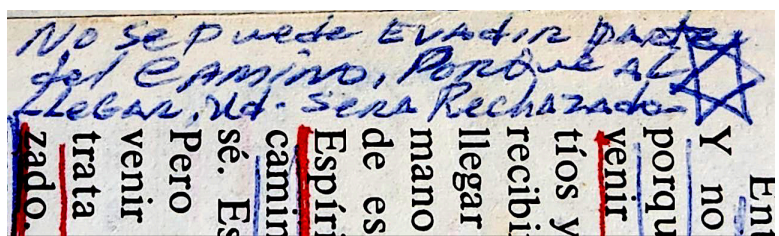 No Se puede EVAdiR PARTE
del CAMINO, PORQUE AL
LLEGAR, Ud. SERA RechAzAdo-
Ent
Y no
porqu
venir
tíos y
recibi
llegar
mano
de es
Espíri
camin
sé. Es
Pero
venir
trata
zado.